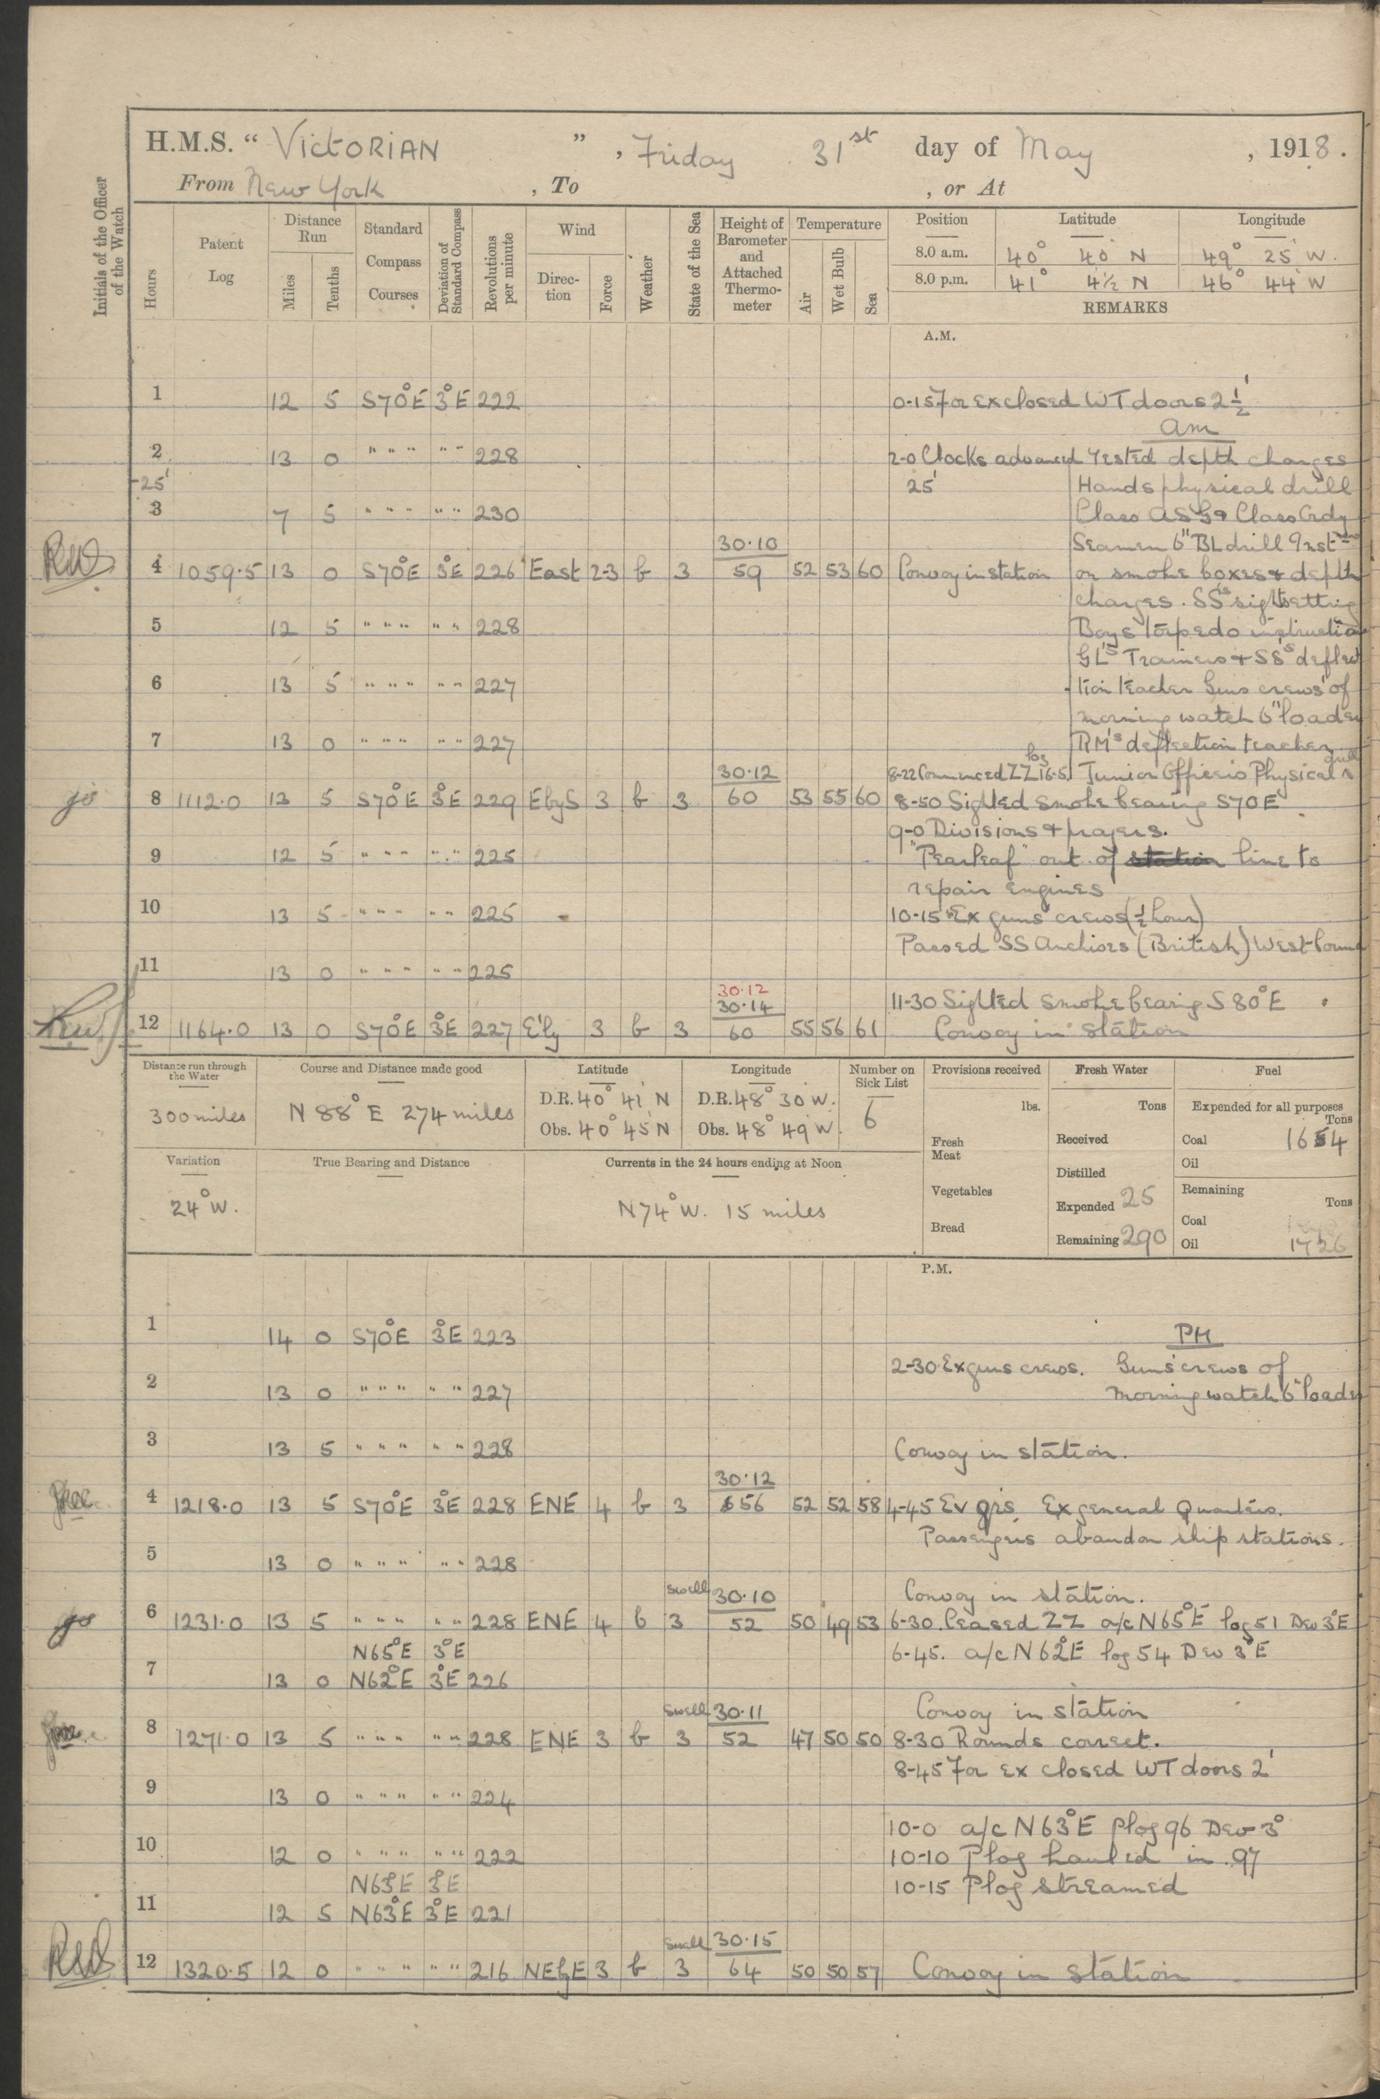 H.M.S. “ Victorian ” , Friday 31st day of May , 1918 .
From New York , To , or At
Initials of the Officer of the Watch
Hours
Patent Log
Distance Run
Miles
Tenths
Standard Compass Courses
Deviation of Standard Compass
Revolutions per minute
Wind
Direction
Force
Weather
State of the Sea
Height of Barometer and Attached Thermometer
Temperature
Air
Wet Bulb
Sea
Position Latitude Longitude
8.0 a.m. 40° 40' N 49° 25' W.
8.0 p.m. 41° 4½ N 46° 44' W
REMARKS
A.M.
1 12 5 S70°E 3°E 222 0-15 For Ex closed WT doors 2½'
am
2 13 0 " " " " " 228 2-0 Clocks advanced Tested depth charges
25' 25' Hands physical drill
3 7 5 " " " " " 230 Class
30·10 Seamen 6" BL drill
4 1059·5 13 0 S70°E 3°E 226 East 2-3 b 3 59 52 53 60 Convoy in station on smoke boxes & depth
charges. SS's sightsetting
5 12 5 " " " " " 228 Boys Torpedo instruction
GL's Trainers & SS's deflec
6 13 5 " " " " " 227 tion teacher Guns crews of
morning watch 6" loader
7 13 0 " " " " " 227 RM's deflection teacher
30·12 8-22 Commenced ZZ log 16·5 Junior Officers Physical drill
8 1112·0 13 5 S70°E 3°E 229 EbyS 3 b 3 60 53 55 60 8-50 Sighted smoke bearing S70E
9-0 Divisions & prayers.
9 12 5 " " " " " 225 "Pearleaf" out of station line to
repair engines
10 13 5 " " " " " 225 10-15 Ex guns crews (½ hour)
Passed SS Anchises (British) West-bound
11 13 0 " " " " " 225
30·12
30·14 11-30 Sighted smoke bearing S 80°E
12 1164·0 13 0 S70°E 3°E 227 E'ly 3 b 3 60 55 56 61 Convoy in station
Distance run through the Water
300 miles
Course and Distance made good
N 88° E 274 miles
Latitude
D.R. 40° 41' N
Obs. 40° 45' N
Longitude
D.R. 48° 30 W.
Obs. 48° 49' W.
Number on Sick List
6
Provisions received
lbs.
Fresh Meat
Vegetables
Bread
Fresh Water
Tons
Received
Distilled
Expended 25
Remaining 290
Fuel
Expended for all purposes
Tons
Coal 1654
Oil
Remaining
Tons
Coal
Oil 1726
Variation
24° W.
True Bearing and Distance
Currents in the 24 hours ending at Noon
N74° W. 15 miles
P.M.
1 14 0 S70°E 3°E 223 PM
2-30 Ex guns crews. Guns' crews of
2 13 0 " " " " " 227 morning watch 6" loader
3 13 5 " " " " " 228 Convoy in station.
30·12
4 1218·0 13 5 S70°E 3°E 228 ENE 4 b 3 56 52 52 58 4-45 Ev qrs. Ex general Quarters.
Passengers abandon ship stations.
5 13 0 " " " " " 228
swell 30·10 Convoy in station.
6 1231·0 13 5 " " " " " 228 ENE 4 b 3 52 50 49 53 6-30. Ceased ZZ a/c N65°E log 51 Dev 3°E
N65°E 3°E 6-45. a/c N62°E log 54 Dev 3°E
7 13 0 N62°E 3°E 226
swell 30·11 Convoy in station
8 1271·0 13 5 " " " " " 228 ENE 3 b 3 52 47 50 50 8-30 Rounds correct.
8-45 For Ex closed WT doors 2'
9 13 0 " " " " " 224
10-0 a/c N63°E Plog 96 Dev 3°
10 12 0 " " " " " 222 10-10 Plog hauled in .97
N63°E 3°E 10-15 Plog streamed
11 12 5 N63°E 3°E 221
swell 30·15
12 1320·5 12 0 " " " " " 216 NEbyE 3 b 3 64 50 50 57 Convoy in station